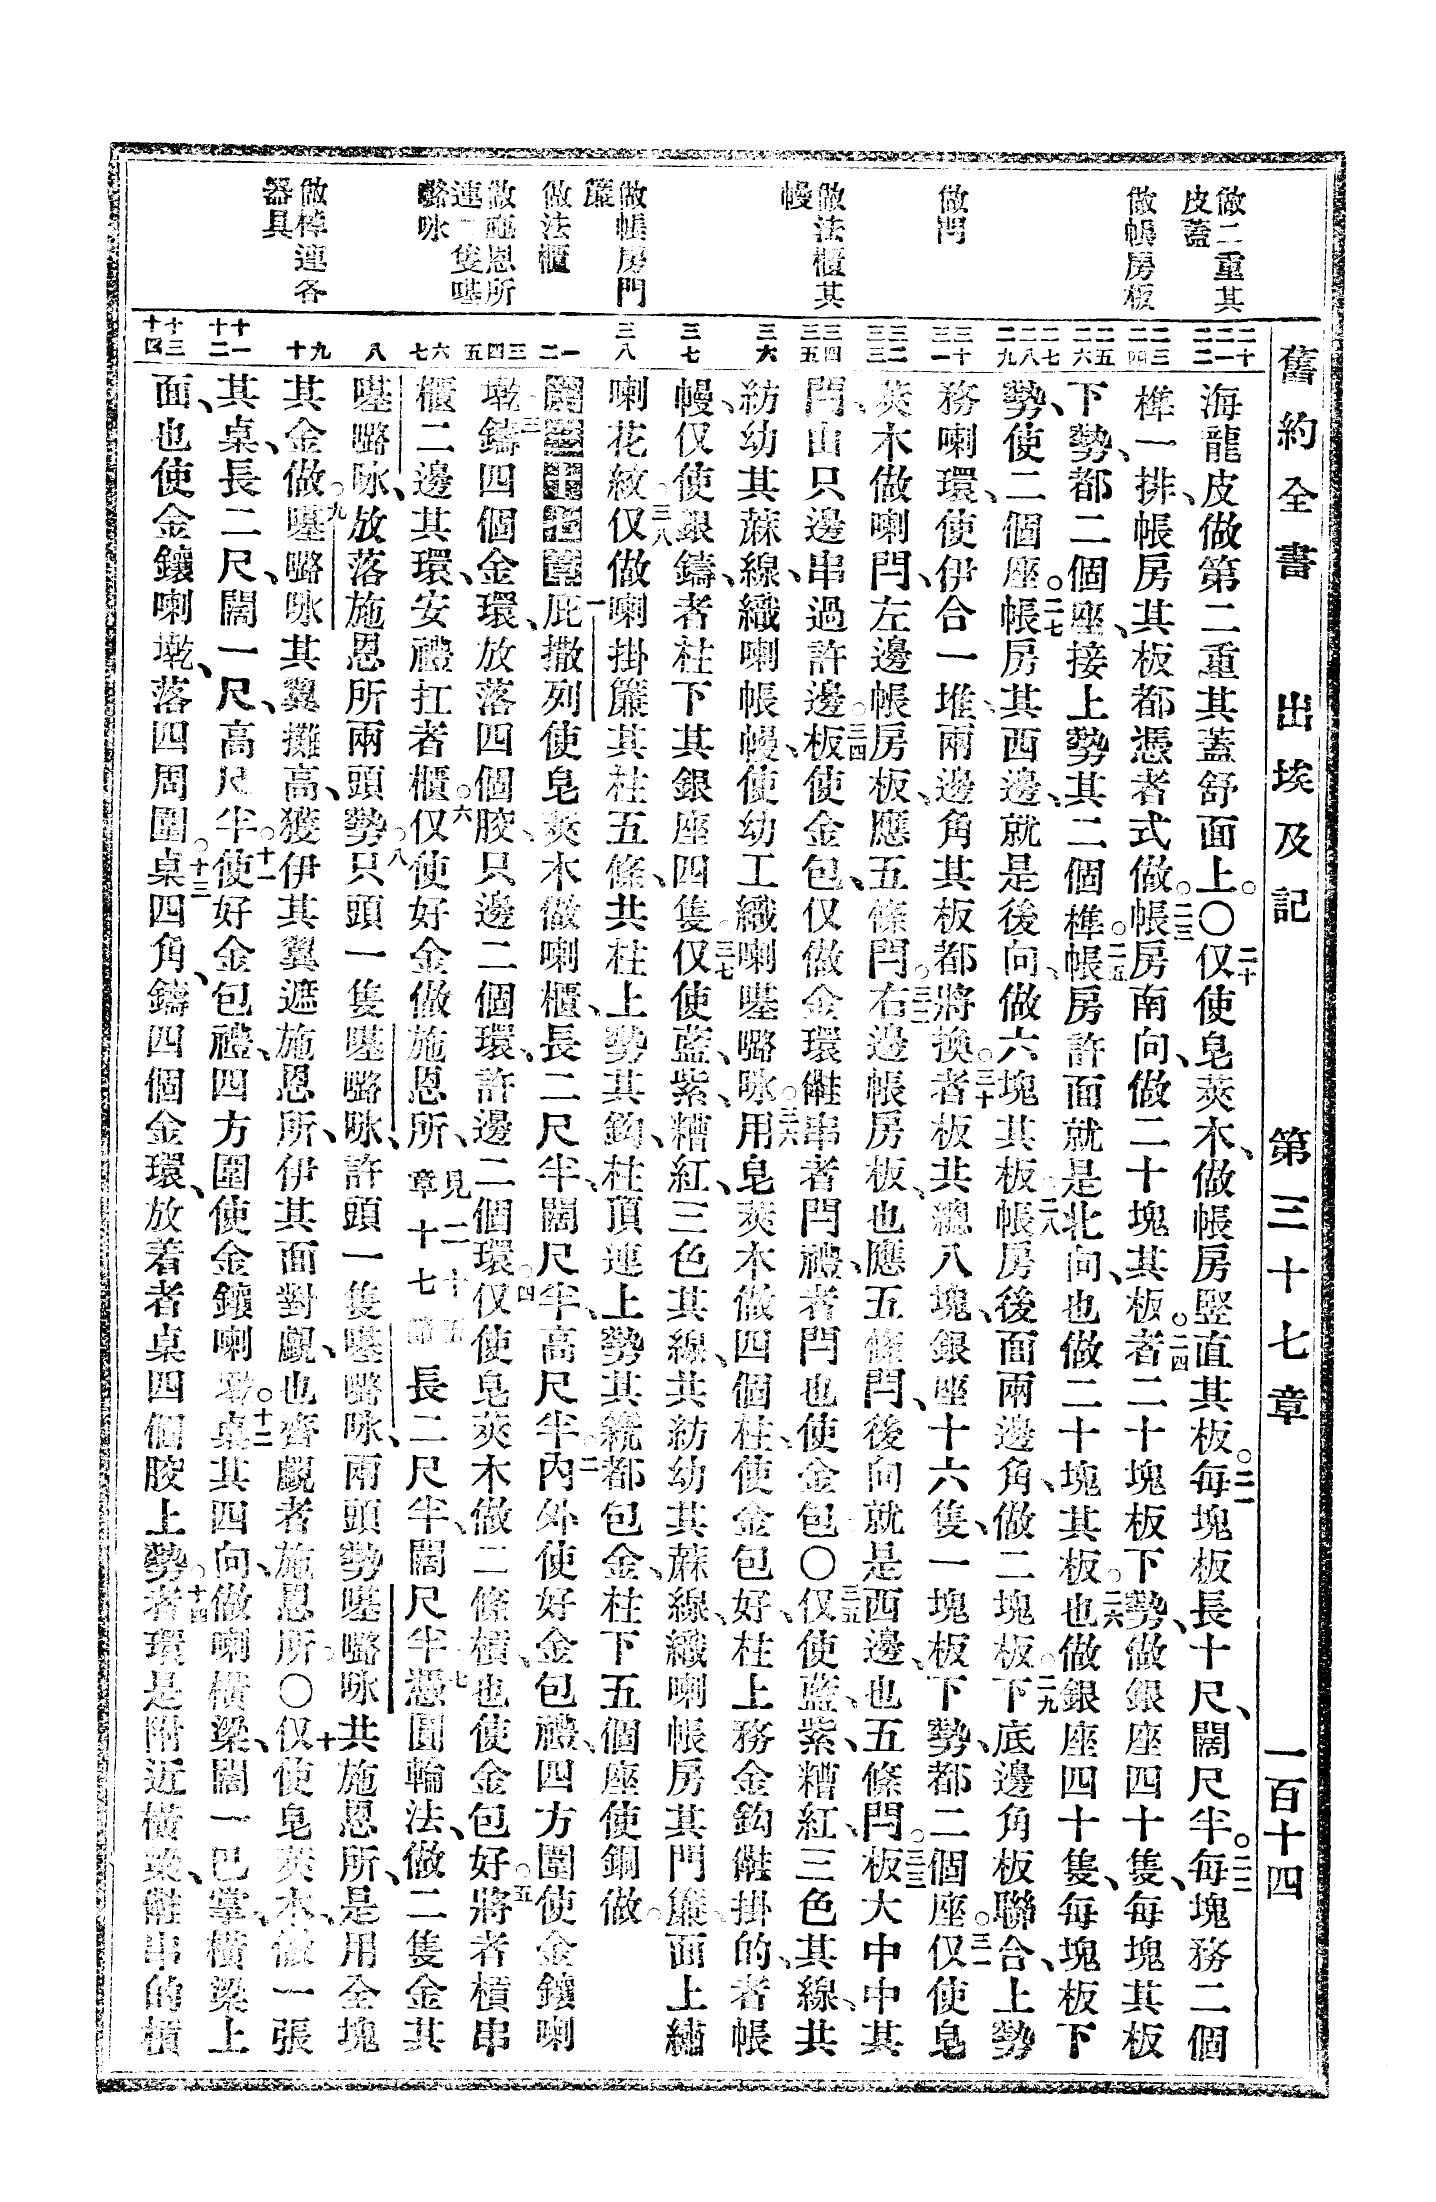 舊約全書 出埃及記 第三十七章 一百十四
做二重其
皮蓋
做帳房板
做閂
做法櫃其
幔
做帳房門
簾
做法櫃
做施恩所
連二隻𠼻
嚕咏
做棹連各
器具
二十 二一 二二
二三 二四
二五 二六
二七 二八 二九
三十 三一
三二 三三
三四 三五
三六
三七
三八
一 二
三 四 五
六 七
八
九 十
十一 十二
十三 十四
海龍皮做第二重其蓋舒面上。〇二十仅使皂莢木、做帳房竪直其板。二一每塊板長十尺、闊尺半。二二每塊務二個
榫一排、帳房其板都憑者式做。二三帳房南向、做二十塊其板。二四者二十塊板下勢、做銀座四十隻、每塊其板
下勢、都二個座、接上勢其二個榫。二五帳房許面就是北向、也做二十塊其板。二六也做銀座四十隻、每塊板下
勢、使二個座。二七帳房其西邊、就是後向、做六塊其板。二八帳房後面兩邊角、做二塊板。二九下底邊角板聯合、上勢
務喇環、使伊合一堆、兩邊角其板都將換。三十者板共總八塊、銀座十六隻、一塊板下勢、都二個座。三一仅使皂
莢木做喇閂、左邊帳房板、應五條閂。三二右邊帳房板、也應五條閂、後向就是西邊、也五條閂。三三板大中中其
閂、山只邊串過許邊。三四板使金包、仅做金環、儺串者閂禮、者閂也使金包〇三五仅使藍、紫、糟紅、三色其線、共
紡幼其蔴線、織喇帳幔、使幼工織喇嚕咏。三六用皂莢木做四個柱、使金包好、柱上務金鈎儺掛的、者帳
幔、仅使銀鑄、者柱下其銀座四隻。三七仅使藍、紫、糟紅、三色其線、共紡幼其蔴線、織喇帳房其門簾、面上繡
喇花紋。三八仅做喇掛簾其柱五條、共柱上勢其鈎、柱頂連上勢其䌫都包金、柱下五個座使銅做。
第三十七章一庇撒列使皂莢木做喇櫃、長二尺半、闊尺半、高尺半。二內外使好金包禮、四方圍使金鑲喇
墘。三鑄四個金環、放落四個骹、只邊二個環、許邊二個環。四仅使皂莢木做二條槓、也使金包好。五將者槓串
櫃二邊其環、安禮扛者櫃。六仅使好金做施恩所、見二十五章十七節長二尺半、闊尺半。七憑圓輪法、做二隻金其
嚕咏、放落施恩所兩頭勢。八只頭一隻嚕咏、許頭一隻嚕咏、兩頭勢嚕咏共施恩所、是用全塊
其金做。九嚕咏其翼攤高、獲伊其翼遮施恩所、伊其面對覷、也齊覷者施恩所。〇十仅使皂莢木、做一張
其桌、長二尺、闊一尺、高尺半。十一使好金包禮、四方圍使金鑲喇墘。十二桌其四向、做喇橫梁、闊一巴掌、橫梁上
面、也使金鑲喇墘、落四周圍。十三桌四角、鑄四個金環、放着者桌四個骹上勢。十四者環是附近橫梁、儺串的槓